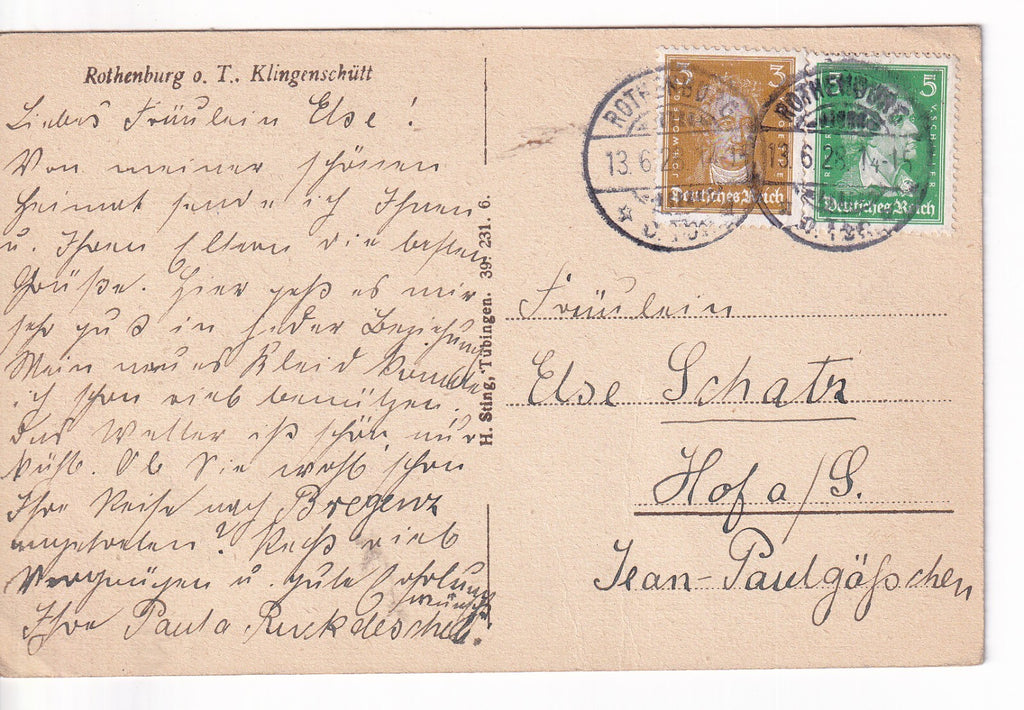 Rothenburg o. T., Klingenschütt
Liebes Fräulein Else!
Von meiner schönen
Heimat sende ich Ihnen
u. Ihren Eltern die besten
Grüße. Hier geht es mir
sehr gut in jeder Beziehung
Mein neues Kleid konnte
ich schon viel benützen.
Das Wetter ist schön nur
kühl. Ob Sie wohl schon
Ihre Reise nach Bregenz
angetreten? Recht viel
Vergnügen u. gute Erholung
wünscht
Ihre Paula Ruckdeschel.
H. Sting, Tübingen. 39. 231. 6.
ROTHENBURG
13.6.28. 14-15
o. Tbr.
3 3
Deutsches Reich
ROTHENBURG
13.6.28. 14-15
o. Tbr.
5
V. SCHILLER
Deutsches Reich
Fräulein
Else Schatz
Hof a/S.
Jean-Paulgäßchen